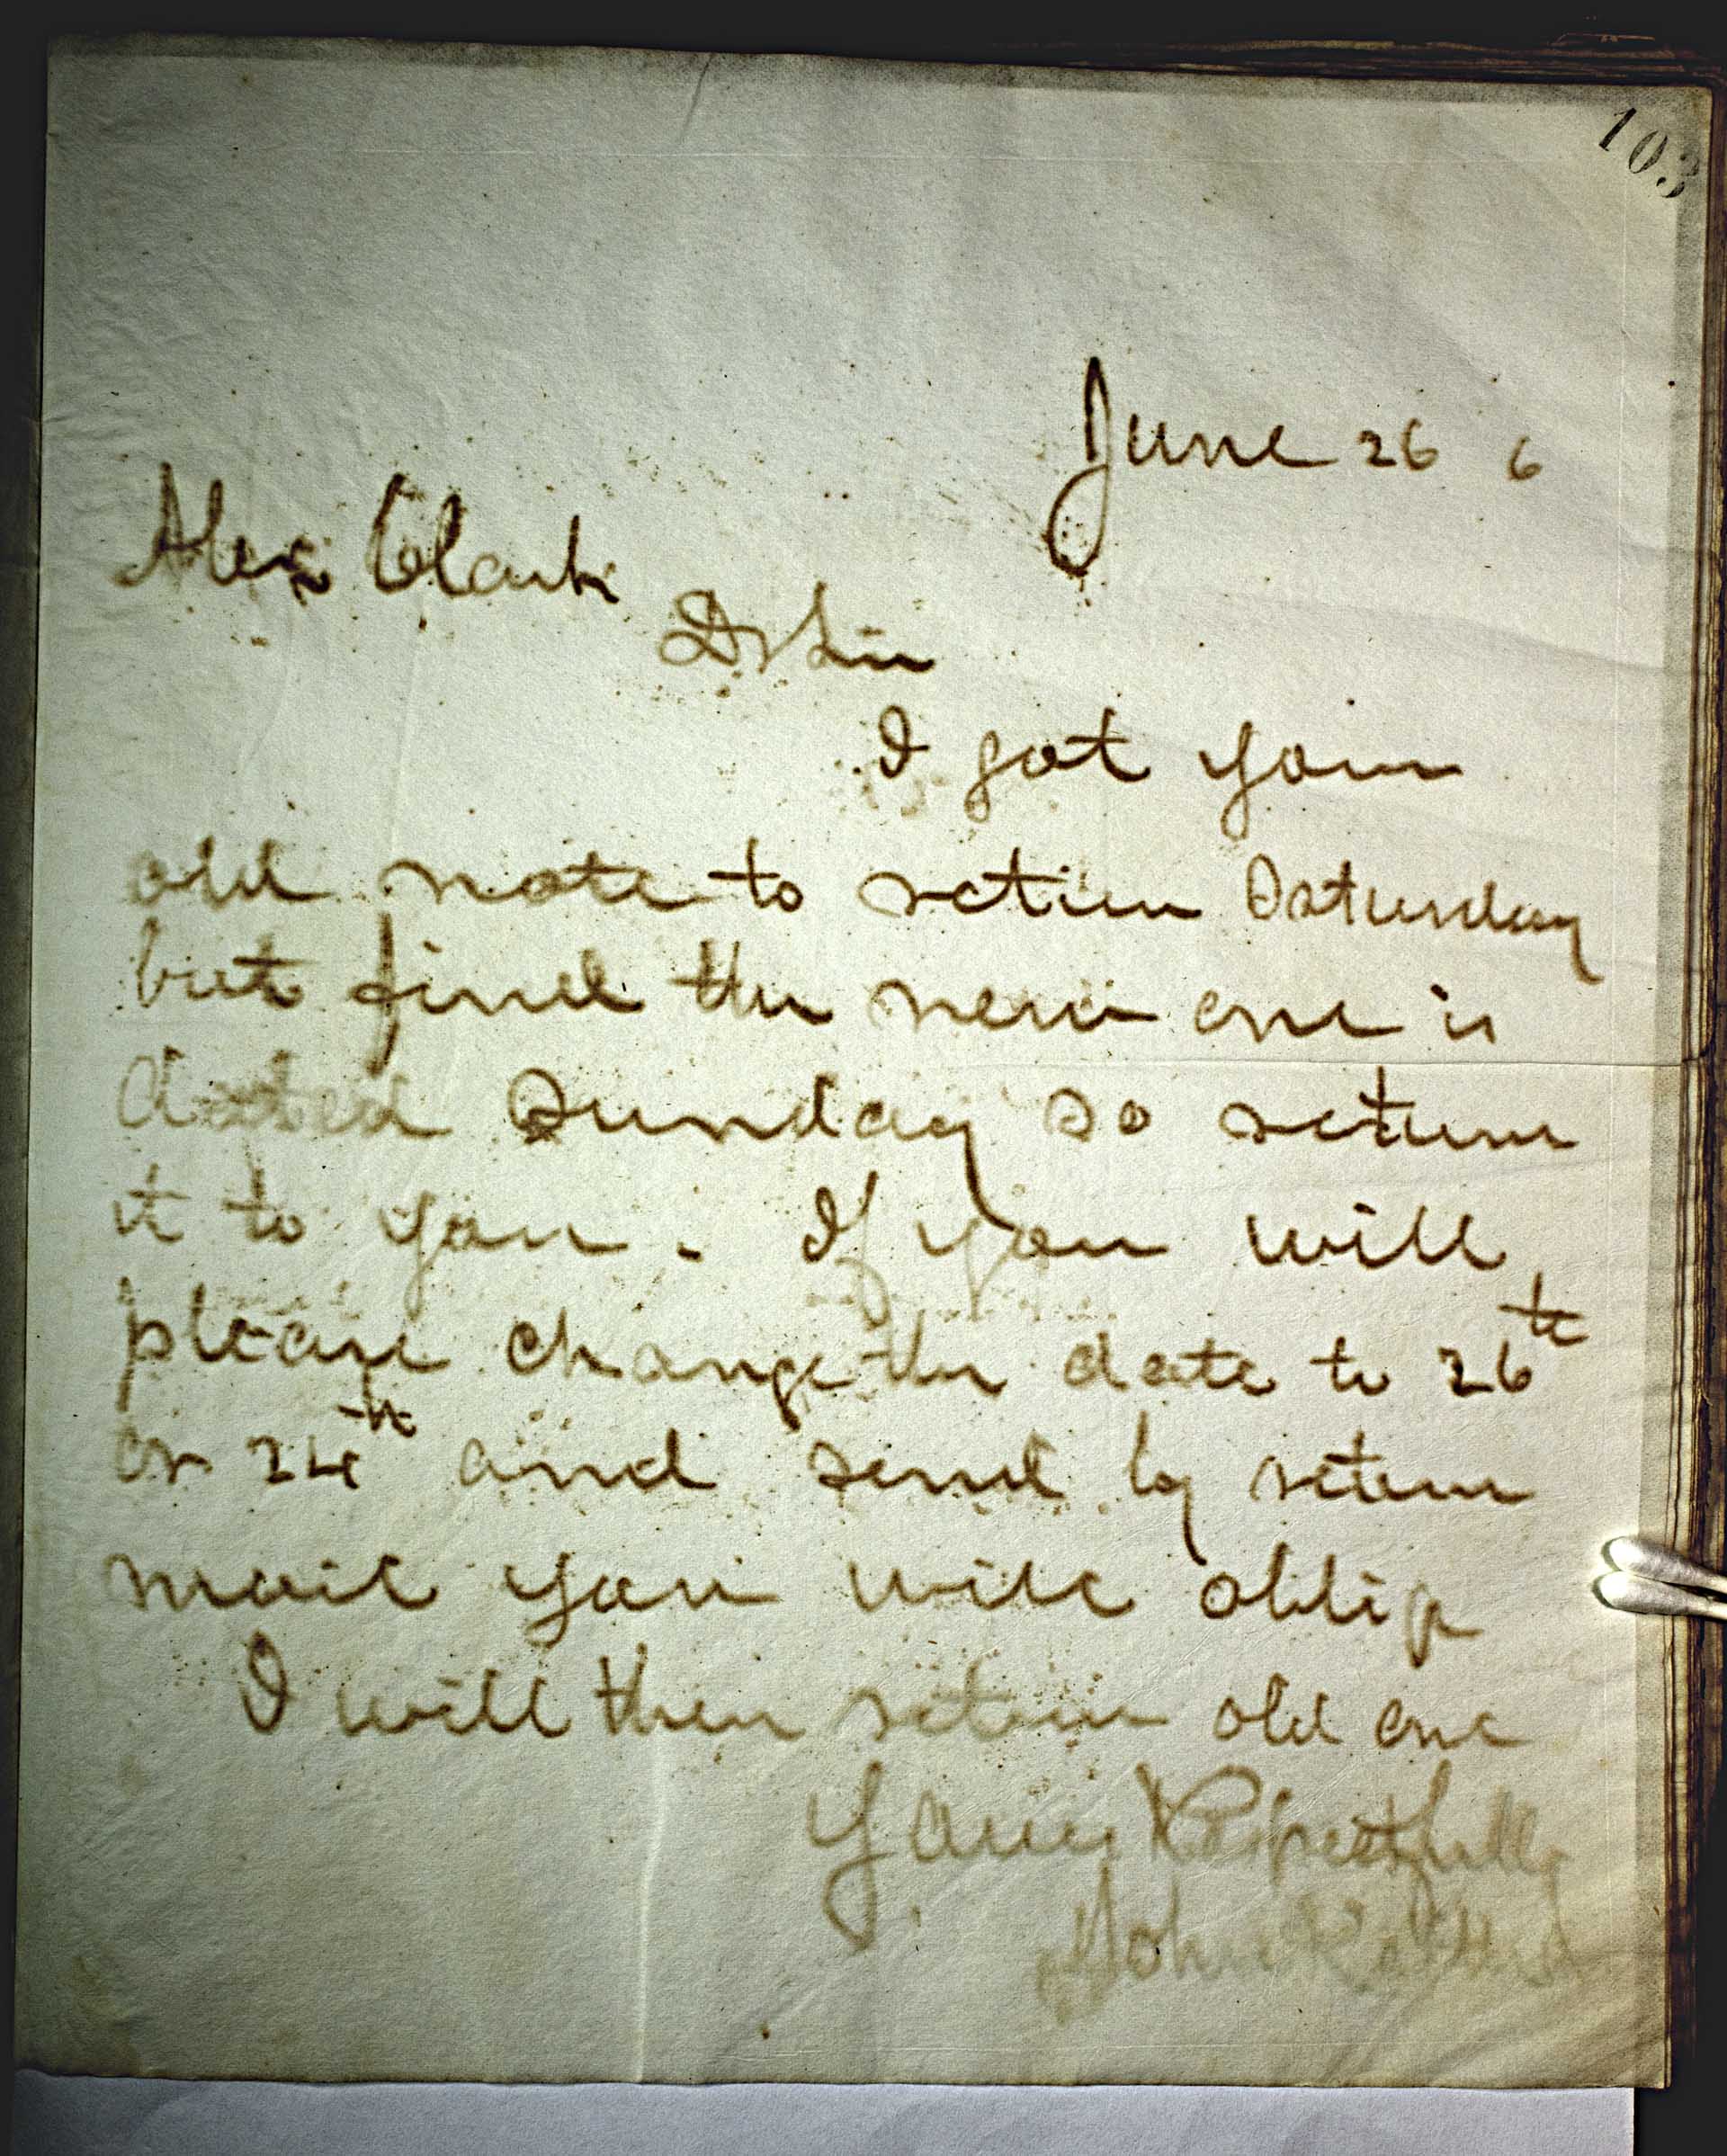 103
June 26 6
Alex Clark
Dr Sir
I got your
old note to return Saturday
but find the new one is
dated Sunday so return
it to you. If you will
please change the date to 26th
or 24th and send by return
mail you will oblige
I will then return old one
Yours Respectfully
John